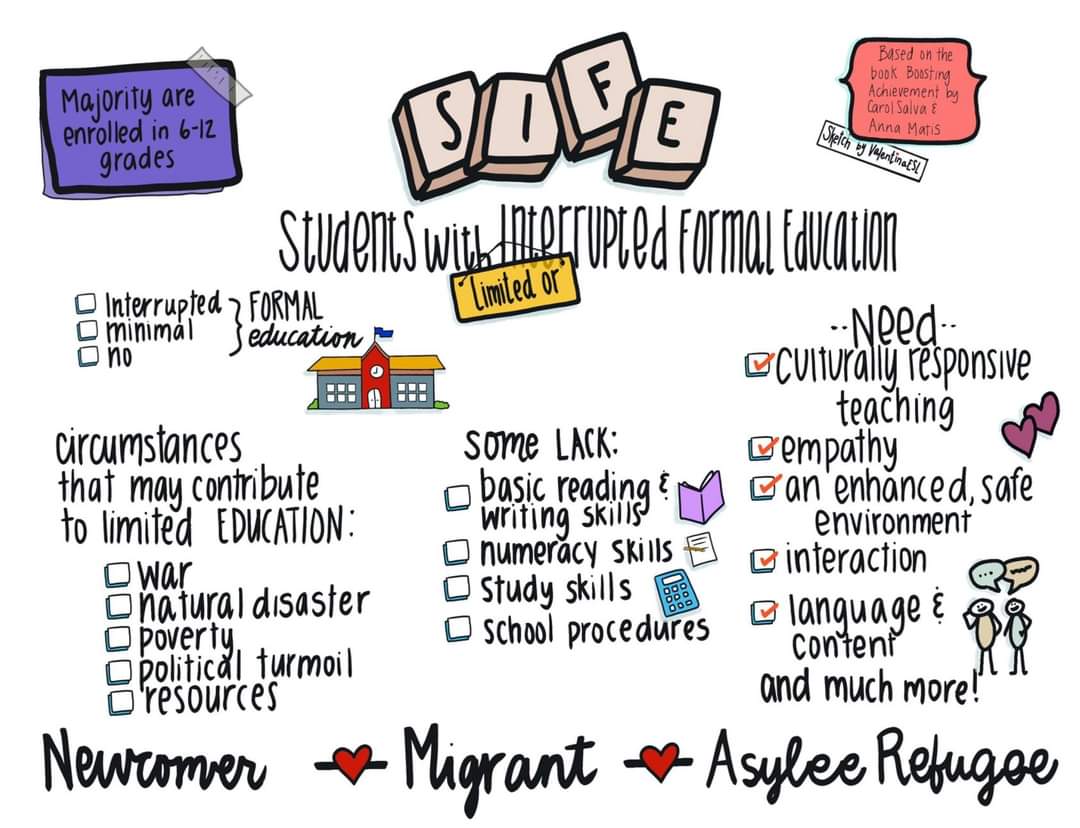 Majority are
enrolled in 6-12
grades
SIFE
Based on the
book Boosting
Achievement by
Carol Salva &
Anna Matis
Sketch by ValentinaESL
Students with Interrupted Formal Education
Limited or
Interrupted
minimal
no
FORMAL
education
circumstances
that may contribute
to limited EDUCATION:
war
natural disaster
poverty
political turmoil
resources
some LACK:
basic reading &
writing skills
numeracy skills
study skills
school procedures
--Need--
culturally responsive
teaching
empathy
an enhanced, safe
environment
interaction
language &
content
and much more!
Newcomer Migrant Asylee Refugee